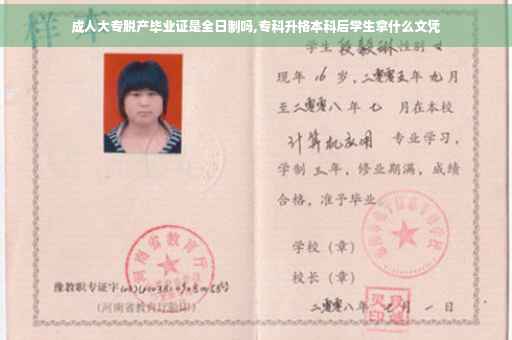 成人大专脱产毕业证是全日制吗,专科升格本科后学生拿什么文凭
样本
学生 段毅琳 性别 女
现年 16 岁,二零零五年 九月
至二零零八年 七 月在本校
计算机应用 专业学习,
学制 三 年,修业期满,成绩
合格,准予毕业
学校(章)
校长(章)
二零零八年 七 月 一 日
河南省教育厅
豫教职专证字
(河南省教育厅验印)